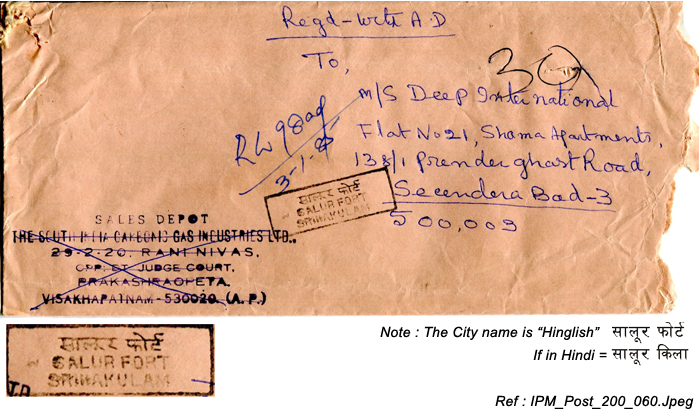 Regd-with A.D
To,
30
M/S Deep International
Flat No 21, Shama Apartments,
138/1 Prenderghast Road,
Secendera Bad-3
500,003
3-1-85
सालूर फोर्ट
SALUR FORT
SRIKAKULAM
SALES DEPOT
THE SOUTH INDIA CARBONIC GAS INDUSTRIES LTD.,
29-2-20, RANI NIVAS,
OPP. DT. JUDGE COURT,
PRAKASHRAOPETA,
VISAKHAPATNAM-530020. (A. P.)
सालूर फोर्ट
SALUR FORT
SRIKAKULAM
Note : The City name is “Hinglish” सालूर फोर्ट
If in Hindi = सालूर किला
Ref : IPM_Post_200_060.Jpeg